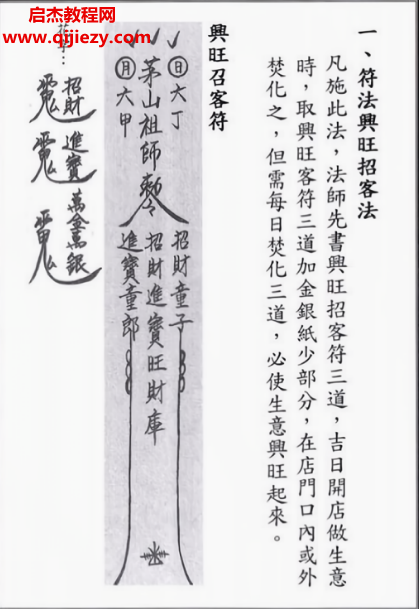 启杰易学资料网
www.qjiezy.com
一、符法興旺招客法
凡施此法，法師先書興旺招客符三道，吉日開店做生意
時，取興旺客符三道加金銀紙少部分，在店門口內或外
焚化之，但需每日焚化三道，必使生意興旺起來。
興旺召客符
日 六丁
茅山祖師敕令
月 六甲
招財童子
招財進寶旺財庫
進寶童郎
招財
進寶
萬金萬銀